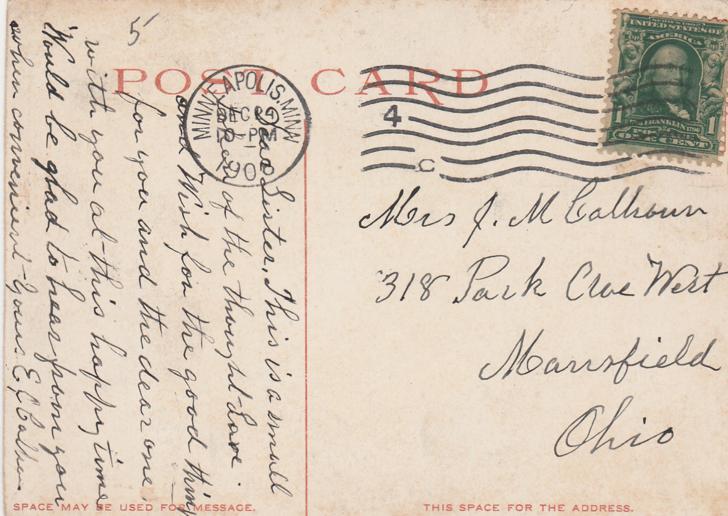 5
POST CARD
MINNEAPOLIS.MINN
DEC
PM
190
4
C
UNITED STATES OF
AMERICA
1 1
FRANKLIN
ONE CENT
Dear Sister. This is a small
of the thought I
and Wish for the good thing
for you and the dear one
with you at this happy time
Would be glad to hear from you
when convenient - Yours E J Calhoun
Mrs J. M Calhoun
318 Park Ave West
Mansfield
Ohio
SPACE MAY BE USED FOR MESSAGE.
THIS SPACE FOR THE ADDRESS.